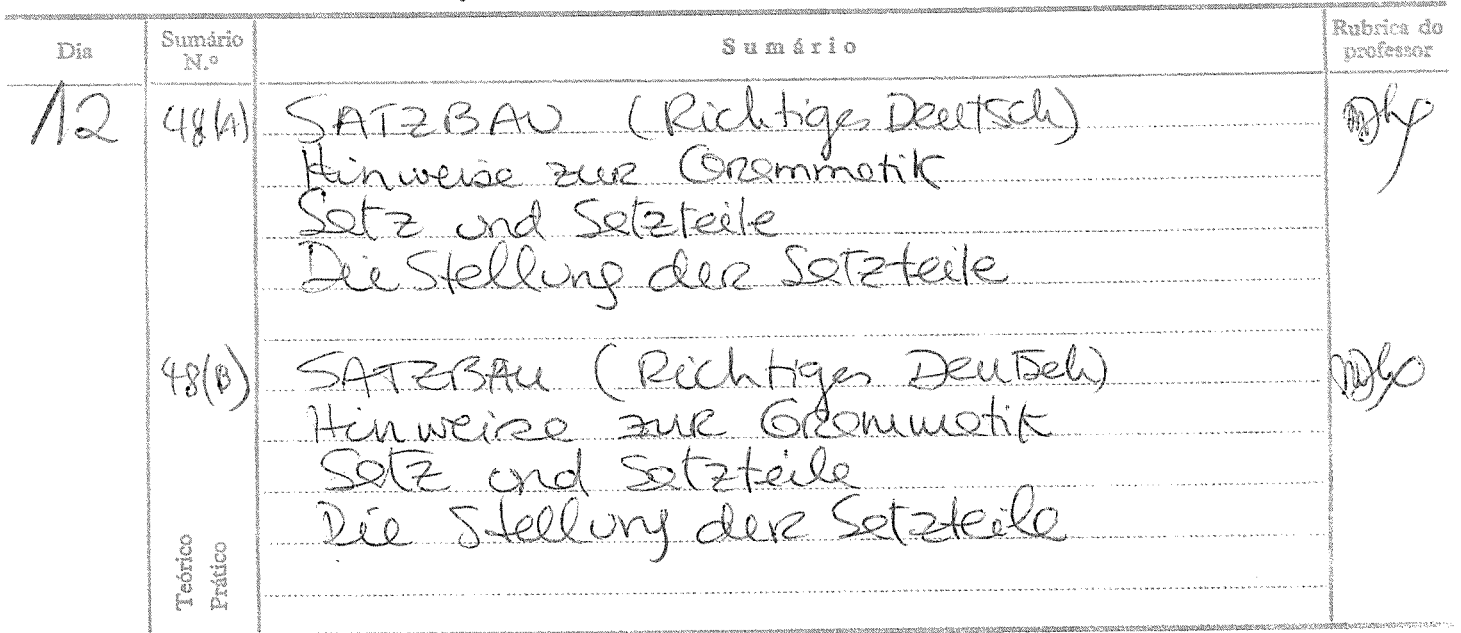 Dia Sumário N.º Sumário Rubrica do professor
12 48(A) SATZBAU (Richtiges Deutsch)
Hinweise zur Grammatik
Satz und Satzteile
Die Stellung der Satzteile
48(B) SATZBAU (Richtiges Deutsch)
Hinweise zur Grammatik
Satz und Satzteile
Die Stellung der Satzteile
Teórico
Prático